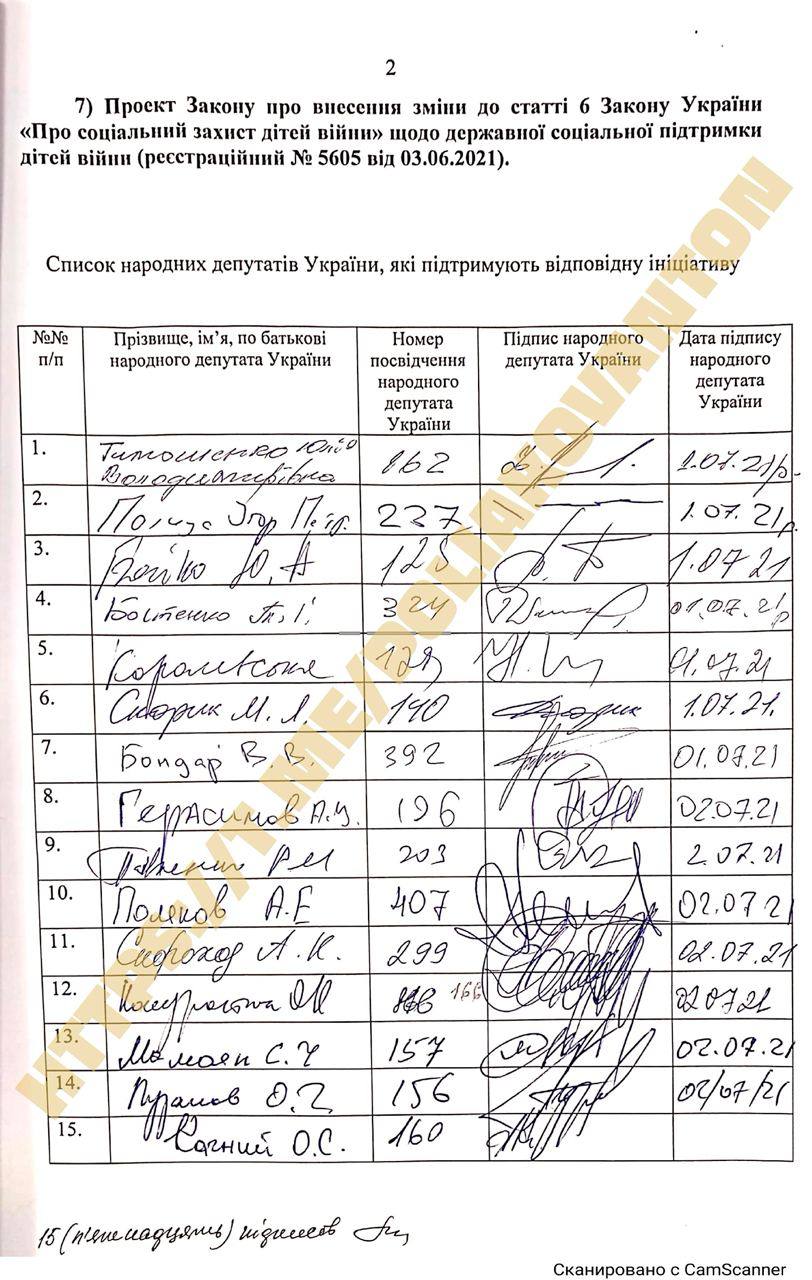 2
7) Проект Закону про внесення зміни до статті 6 Закону України
«Про соціальний захист дітей війни» щодо державної соціальної підтримки
дітей війни (реєстраційний № 5605 від 03.06.2021).
Список народних депутатів України, які підтримують відповідну ініціативу
№№ п/п Прізвище, ім’я, по батькові народного депутата України Номер посвідчення народного депутата України Підпис народного депутата України Дата підпису народного депутата України
1. Тимошенко Юлія Володимирівна 162 1.07.21р.
2. Ігор Петр. 237 1.07.21р.
3. Бойко Ю.А 125 1.07.21
4. 324 01.07.21р
5. Королевська 129 01.07.21
6. Скорик М.Л. 140 1.07.21.
7. Бондар В.В. 392 01.07.21
8. Герасимов А.У. 196 02.07.21
9. 203 2.07.21
10. Поляков А.Е 407 02.07.21
11. Скороход А.К. 299 02.07.21
12. 166 02.07.21
13. Мамоян С.Ч 157 02.07.21
14. 156 02/07/21
15. Качний О.С. 160
15 (п'ятнадцять) підписів
HTTPS://T.ME/POLIAKOVANTON
Сканировано с CamScanner